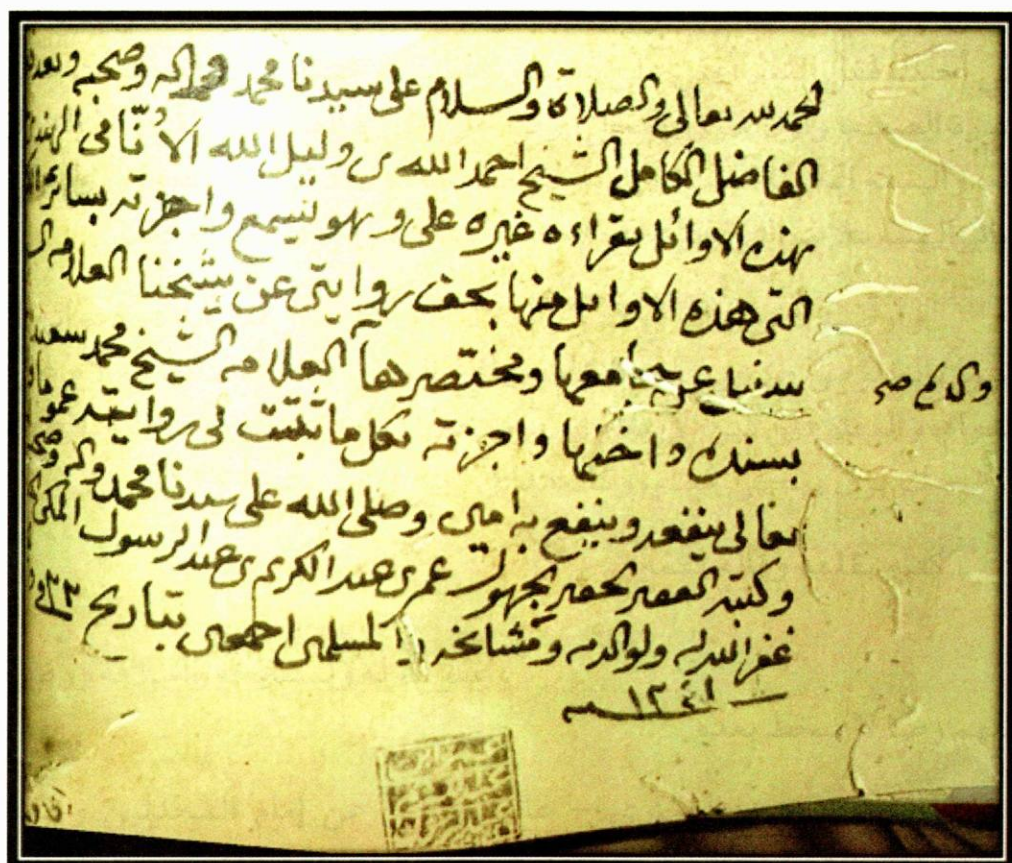 لحمد لله تعالى والصلاة والسلام على سيدنا محمد واله وصحبه وبعد
الفاضل الكامل الشيخ احمد الله بن وليل الله الأنّامى الهندى
بهذه الاوائل بقراءه غيره على وهو يسمع واجزته بسائر
التى هذه الاوائل منها بحق روايتى عن شيخنا العلامه
عن جامعها ومختصرها العلامه الشيخ محمد سعيد
بسنده واجزته بكل ما ثبتت لى روايته عموما
تعالى ينفعه وينفع به امين وصلى الله على سيدنا محمد واله وصحبه
وكتبه الفقير لحقير عمر بن عبد الكريم بن عبد الرسول المكى
غفر الله له ولوالديه ومشائخه والمسلمين اجمعين بتاريخ ٢٣
١٢٤١